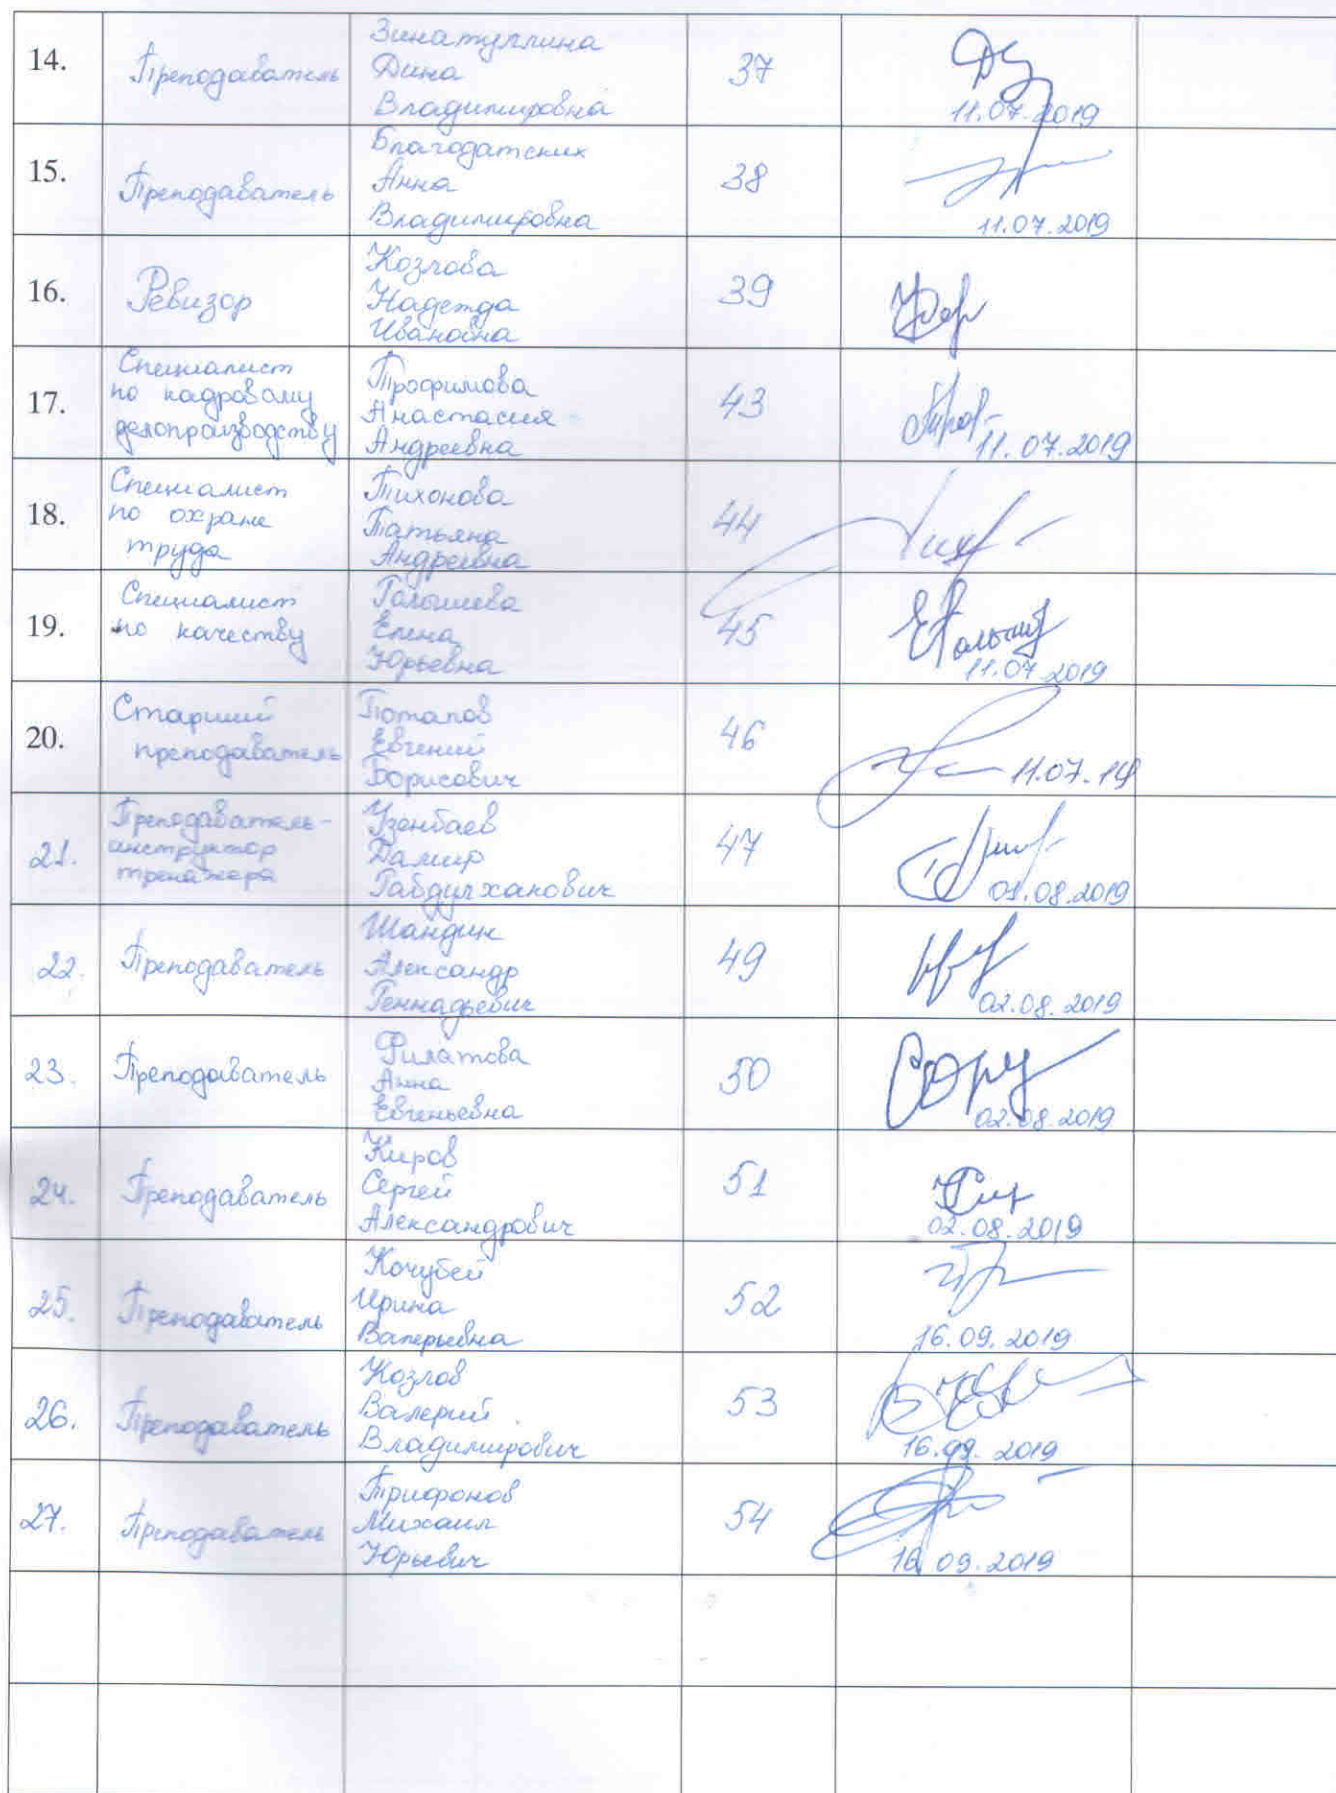 14.
Преподаватель
Зинатуллина
Дина
Владимировна
37
11.07.2019
15.
Преподаватель
Благодатских
Анна
Владимировна
38
11.07.2019
16.
Ревизор
Козлова
Надежда
Ивановна
39
17.
Специалист
по кадровому
делопроизводству
Трофимова
Анастасия
Андреевна
43
11.07.2019
18.
Специалист
по охране
труда
Тихонова
Татьяна
Андреевна
44
19.
Специалист
по качеству
Голышева
Елена
Юрьевна
45
11.07.2019
20.
Старший
преподаватель
Потапов
Евгений
Борисович
46
11.07.19
21.
Преподаватель-
инструктор
тренажера
Узенбаев
Дамир
Габдулханович
47
01.08.2019
22.
Преподаватель
Шандин
Александр
Геннадьевич
49
02.08.2019
23.
Преподаватель
Филатова
Анна
Евгеньевна
50
02.08.2019
24.
Преподаватель
Киров
Сергей
Александрович
51
02.08.2019
25.
Преподаватель
Кочубей
Ирина
Валерьевна
52
16.09.2019
26.
Преподаватель
Козлов
Валерий
Владимирович
53
16.09.2019
27.
Преподаватель
Трифонов
Михаил
Юрьевич
54
16.09.2019